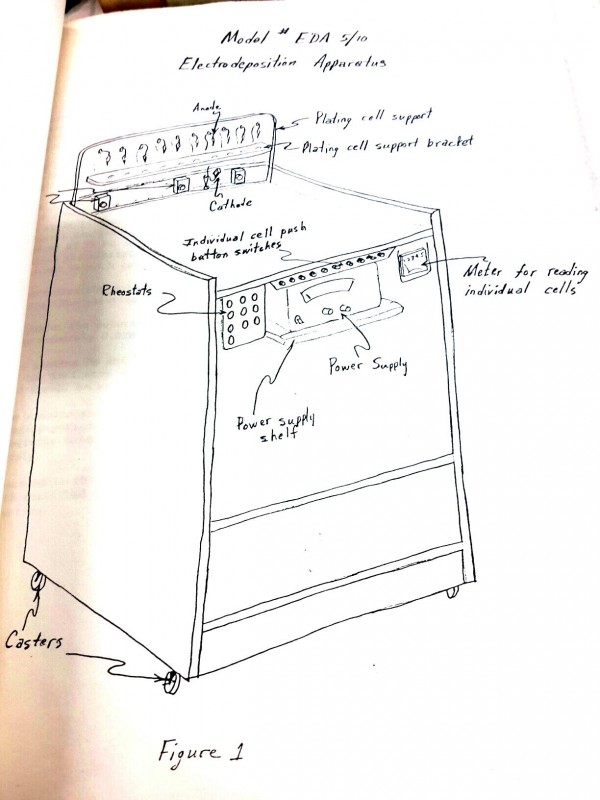 Model # EDA 5/10
Electrodeposition Apparatus
Anode
Plating cell support
Plating cell support bracket
Cathode
Individual cell push
button switches
Rheostats
Meter for reading
individual cells
Power Supply
Power supply
shelf
Casters
Figure 1